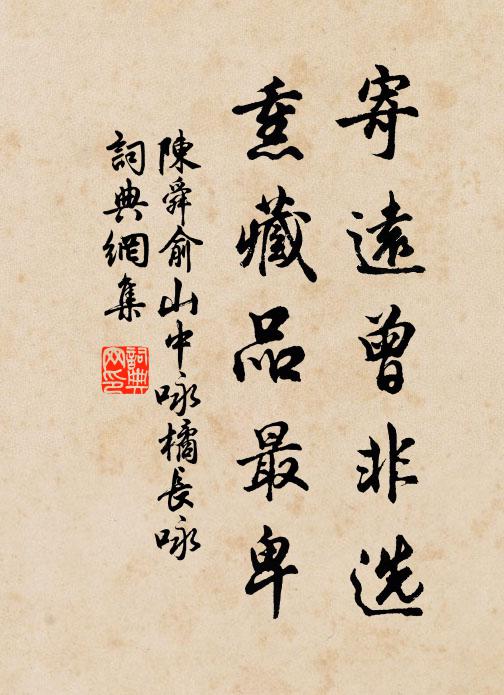 寄遠曾非选
熏藏品最卑
陳舜俞山中咏橘長咏
詞典網集
詞典网印